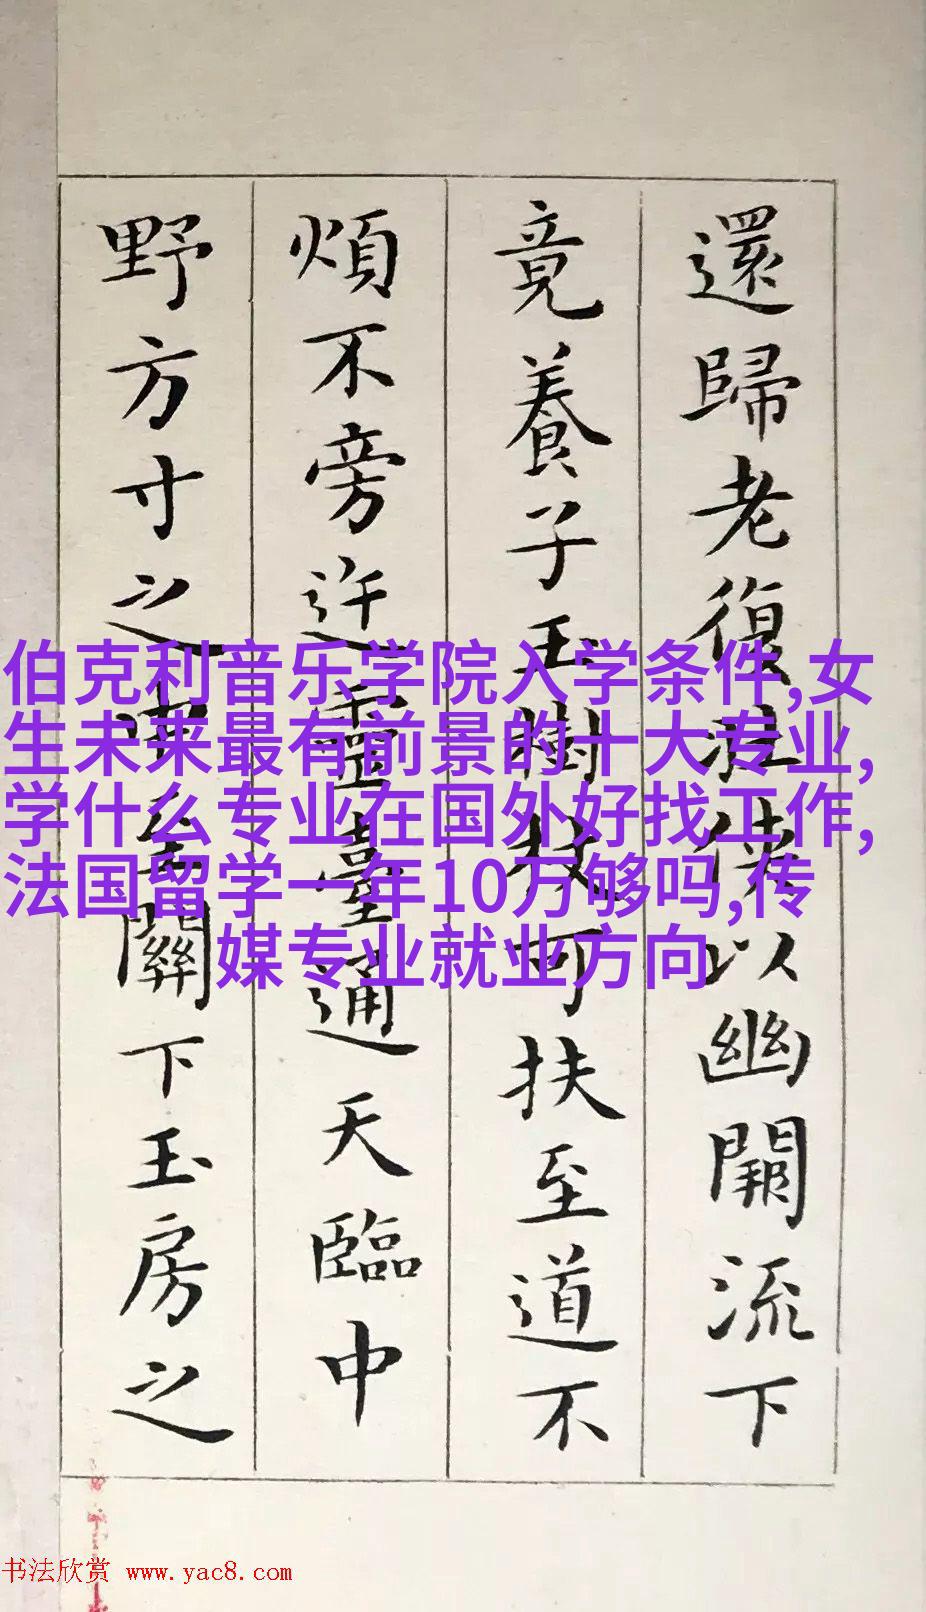 還歸老復壯俠以幽闕流下
竟養子玉樹杖可扶至道不
煩不旁迕靈臺通天臨中
野方寸之中至關下玉房之
伯克利音乐学院入学条件,女
生未来最有前景的十大专业,
学什么专业在国外好找工作,
法国留学一年10万够吗,传
媒专业就业方向
书法欣赏 www.yac8.com